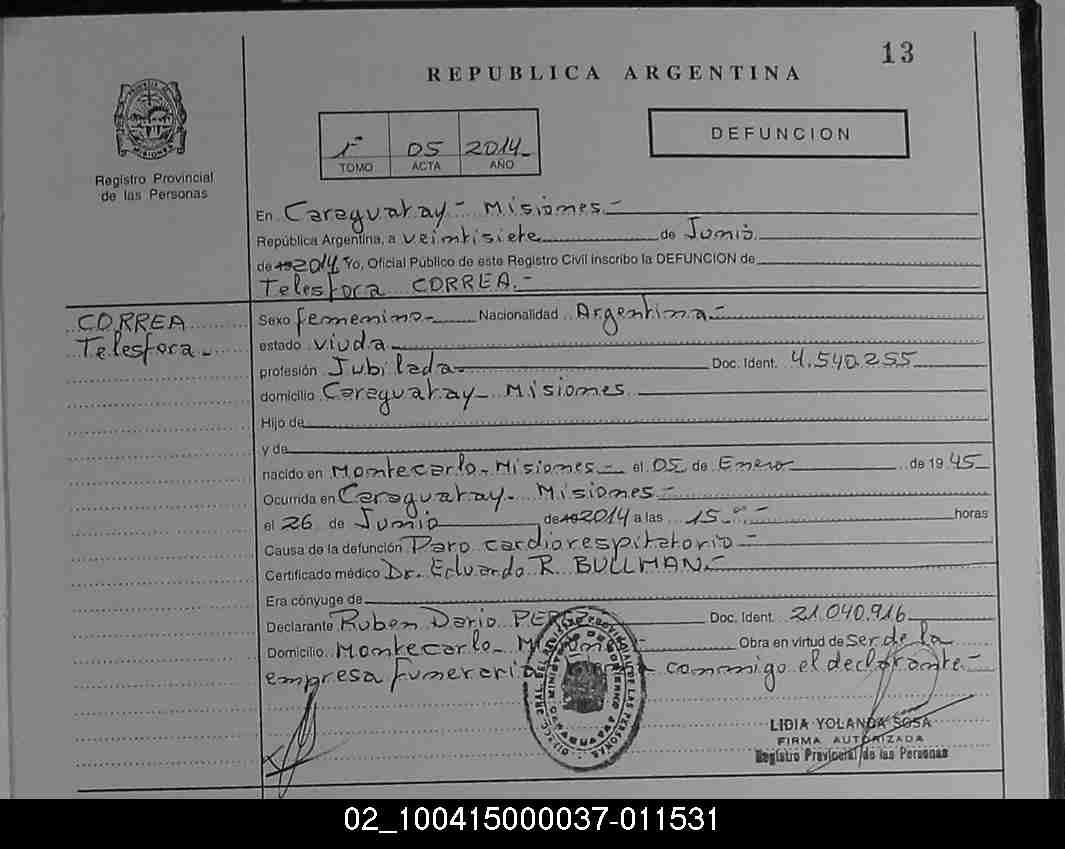 13
REPUBLICA ARGENTINA
1º 05 2014
TOMO ACTA AÑO
DEFUNCION
Registro Provincial
de las Personas
En Caraguatay - Misiones.-
República Argentina, a veintisiete de Junio
de 19 2014 Yo, Oficial Público de este Registro Civil inscribo la DEFUNCION de
Telesfora CORREA.-
CORREA
Telesfora.-
Sexo femenino- Nacionalidad Argentina-
estado viuda
profesión Jubilada- Doc. Ident. 4.540.255
domicilio Caraguatay- Misiones
Hijo de
y de
nacido en Montecarlo- Misiones- el 05 de Enero de 1945
Ocurrida en Caraguatay- Misiones-
el 26 de Junio de 19 2014 a las 15.00- horas
Causa de la defunción Paro cardiorespitatorio-
Certificado médico Dr. Eduardo R. BULLMAN-
Era cónyuge de
Declarante Ruben Dario Doc. Ident. 21.040.916
Domicilio Montecarlo- Obra en virtud de Ser de la
empresa funeraria conmigo el declarante-
LIDIA YOLANDA SOSA
FIRMA AUTORIZADA
Registro Provincial de las Personas
02_100415000037-011531